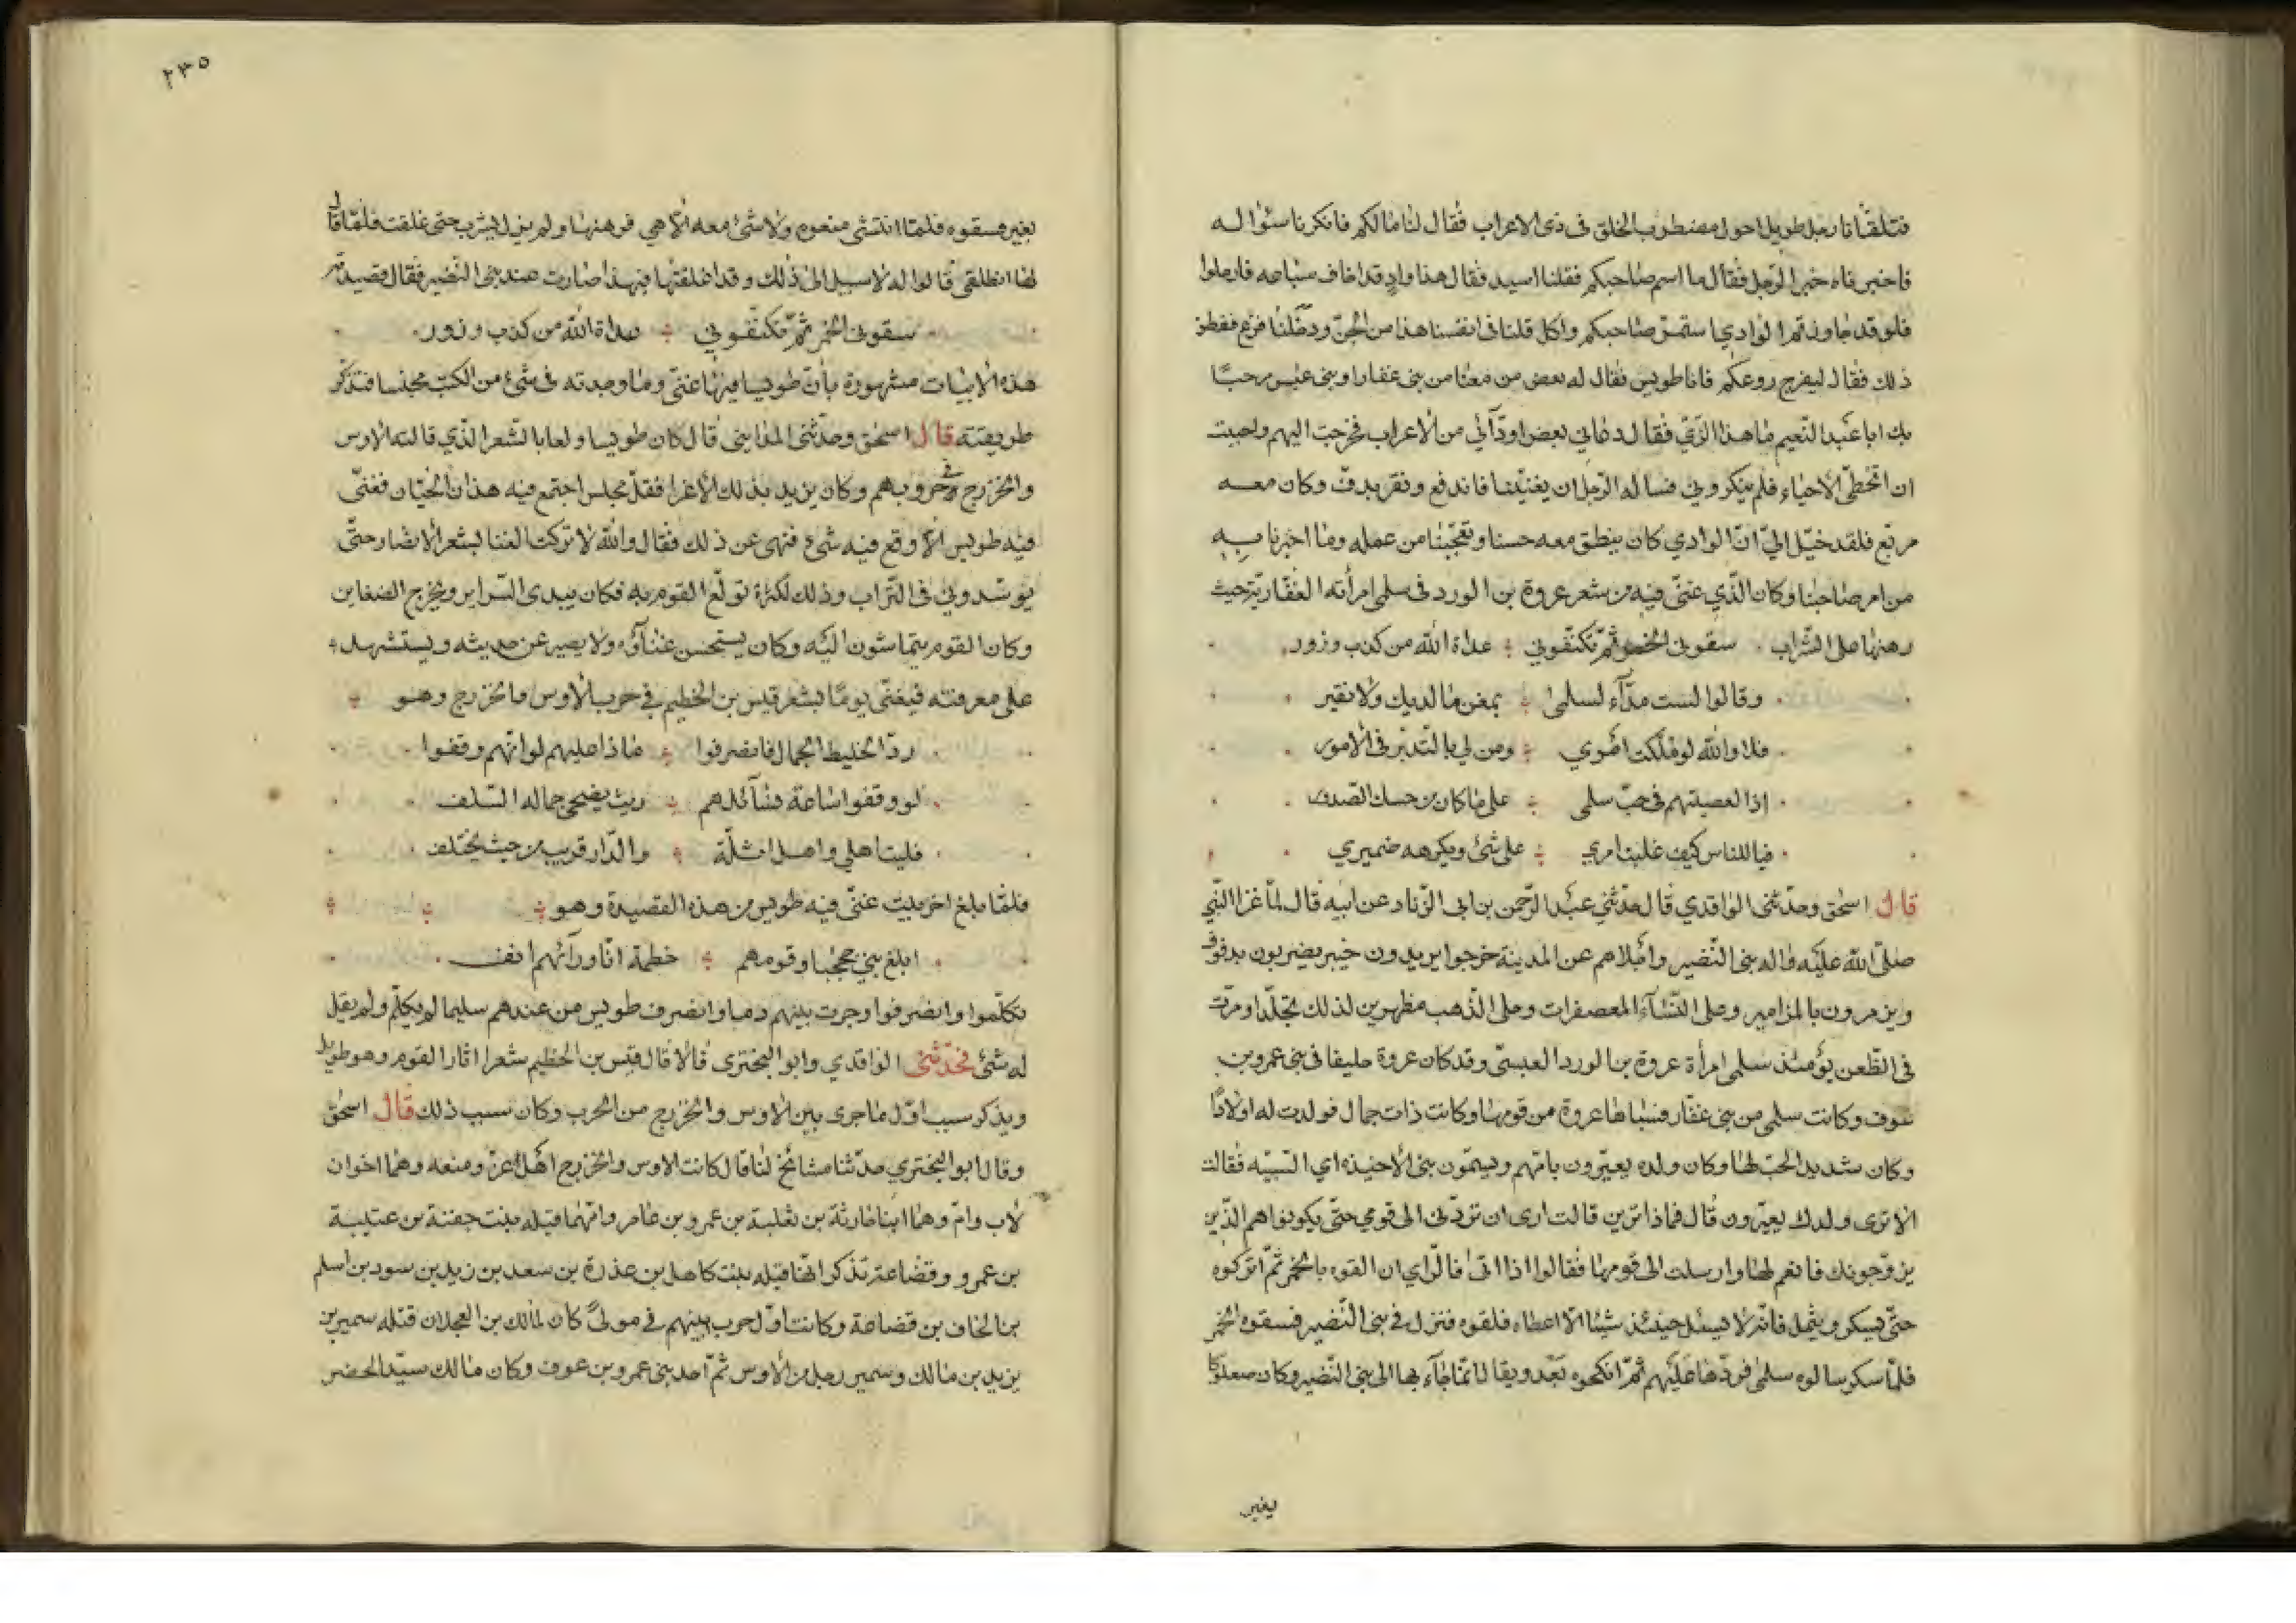 فتلقانا رجل طويل احول مضطرب الخلق فى ذى الاعراب فقال لنا مالكم فانكرنا سئواله
فاخبرناه خبر الرجل فقال ما اسم صاحبكم فقلنا اسيد فقال هذا واد قد اخاف سباعه فارحلوا
فلو قد جاوزتم الوادي استمر صاحبكم واكل قلنا فى انفسنا هذا من الجن ودخلنا فزع ففطن
ذلك فقال ليفرج روعكم فانا طويس فقال له بعض من معنا من بنى غفار او بنى عبس مرحبًا
بك ابا عبد النعيم ما هذا الزي فقال دعاني بعض اودّآئي من الاعراب فخرجت اليهم واحببت
ان اتخطى الاحياء فلم ينكروني فساله الرجل ان يغنينا فاندفع ونقر بدف وكان معه
مربع فلقد خيّل اليّ انّ الوادي كان ينطق معه حسنا وتعجبنا من عمله وما اخبرنا به
من امر صاحبنا وكان الذي غنى فيه من شعر عروة بن الورد فى سلمى امرأته الغفارية حيث
رهنها على الشراب سقونى الخمر ثمّ تكنّفوني عداة الله من كذب وزور
وقالوا لست مدآء لسلمى بمغن ما لديك ولا نقير
فلا والله لو ملكت امري ومن لى بالتدبّر فى الامور
اذا لعصيتهم فى حبّ سلمى على ما كان من حسك الصدور
فيا للناس كيف غلبت امري على شئ ويكرهه ضميري
قال اسحق وحدّثنى الواقدي قال حدّثني عبد الرّحمن بن ابى الزّناد عن ابيه قال لمّا غزا النبّي
صلّى الله عليه واله بنى النّضير واجلاهم عن المدينة خرجوا يريدون خيبر يضربون بدفوف
ويزمرون بالمزامير وعلى النّسآء المعصفرات وحلى الذّهب مظهرين لذلك تجلّدا ومرّت
فى الظّعن يؤمئذ سلمى امرأة عروة بن الورد العبسىّ وقد كان عروة حليفا فى بنى عمرو بن
عوف وكانت سلمى من بنى غفّار فسباها عروة من قومها وكانت ذات جمال فولدت له اولادًا
وكان شديد الحبّ لها وكان ولده يعيّرون بامّهم ويسمّون بنى الاخيذه اي السّبيّه فقالت
الا ترى ولدك يعيّرون قال فماذا ترين قالت ارى ان تردّنى الى قومي حتّى يكونوا هم الذّين
يزوّجونك فانعم لها وارسلت الى قومها فقالوا اذا اتى فالرّاي ان القوه بالخمر ثمّ اتركوه
حتّى يسكر ويثمل فانّه لا يسئل حينئذ شيئا الّا اعطاه فلقوه فنزل فى بنى النّضير فسقوه الخمر
فلمّا سكر سالوه سلمى فردّها عليهم ثمّ انكحوه بعد ويقال انّما جآء بها الى بنى النّضير وكان صعلوكا
يغير
٢٣٥
يغير فسقوه فلمّا انتشى منعوه ولا شئ معه الّا هي فرهنها ولم يزل يشرب حتى غلقت فلمّا قال
لها انطلقى قالوا له لا سبيل الى ذلك وقد اغلقتها فبهذا صارت عند بنى النّضير فقال قصيدته
سقونى الخمر ثمّ تكنّفوني عداة الله من كذب وزور
هذه الابيات مشهورة بأن طويسا فيها غنّى وما وجدته فى شئ من الكتب مجنسا فتذكر
طريقته قال اسحق وحدّثنى المداينى قال كان طويسا ولعا بالشّعر الذّي قالته الاوس
والخزرج فى حروبهم وكان يزيد بذلك الأغرا فقلّ مجلس اجتمع فيه هذان الحيّان فغنّى
فيه طويس الّا وقع فيه شئ فنهى عن ذلك فقال والله لا تركت الغنا بشعر الانصار حتّى
يوسّدوني فى التّراب وذلك لكثرة تولّع القوم به فكان يبدى السّراير ويخرج الضغاين
وكان القوم يتماشون اليه وكان يستحسن غناؤه ولا يصبر عن حديثه ويستشهد
على معرفته فيغنّى يومًا بشعر قيس بن الخطيم فى حرب الاوس والخزرج وهو
ردّ الخليط الجمال فانصرفوا ماذا عليهم لو انّهم وقفوا
لو وقفوا ساعة نسآئلهم ريث يضحى جماله السّلف
فليت اهلي واهل اثلة والدّار قريب من حيث يختلف
فلمّا بلغ اخر بيت غنّى فيه طويس من هذه القصيدة وهو
ابلغ بنى جحجبا وقومهم خطمة انّا ورآئهم انف
تكلّموا وانصرفوا وجرت بينهم دما وانصرف طويس من عندهم سليما لم يكلّم ولم يقل
له شئ فحدّثنى الواقدي وابو البخترى قالا قال قيس بن الخطيم شعرا اثار القوم وهو طويل
ويذكر سبب اوّل ما جرى بين الاوس والخزرج من الحرب وكان سبب ذلك قال اسحق
وقال ابو البختري حدّثنا مشائخ لنا قال كانت الاوس والخزرج اهل عزّ ومنعه وهما اخوان
لاب وامّ وهما ابنا حارثة بن ثعلبة بن عمرو بن عامر وامّهما قيله بنت جفنة بن عتيبة
بن عمرو وقضاعة تذكر انّها قيله بنت كاهل بن عذرة بن سعد بن زيد بن سود بن اسلم
بن الحاف بن قضاعة وكانت اوّل حرب بينهم فى مولىً كان لمالك بن العجلان قتله سمير بن
يزيد بن مالك وسمير رجل من الاوس ثمّ احد بنى عمرو بن عوف وكان مالك سيّد الحضر